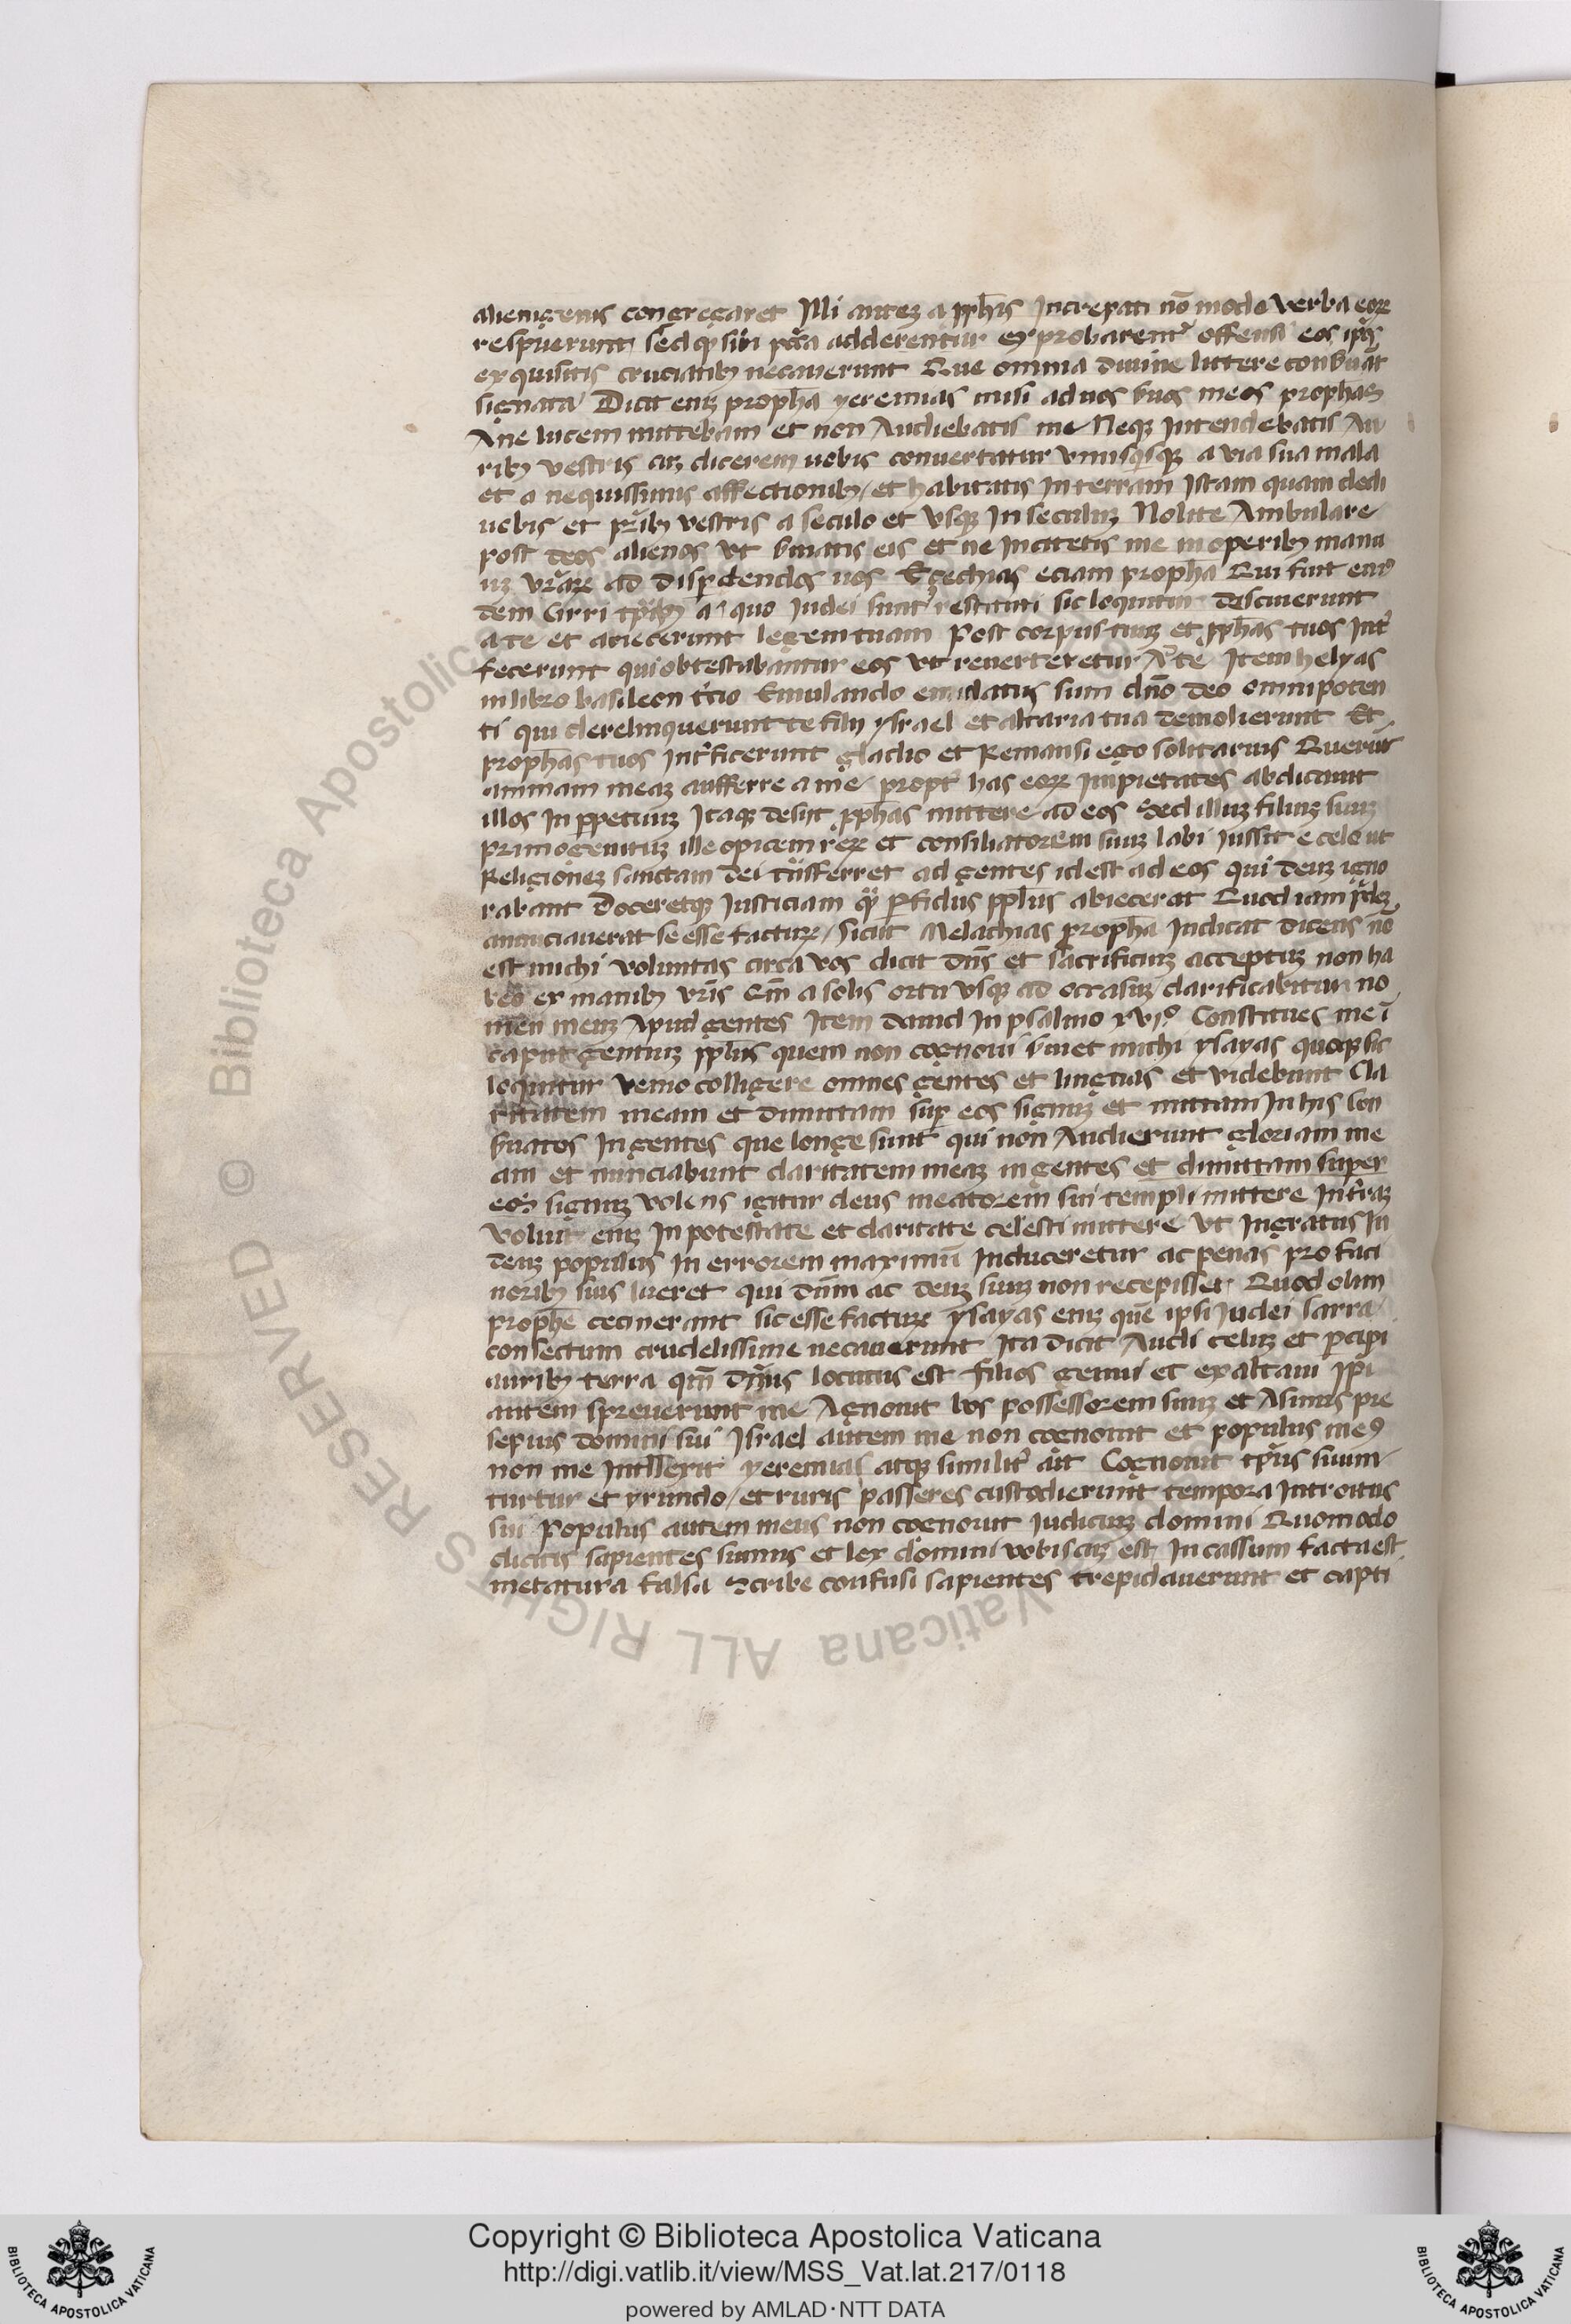 alienigenis congregaret Illi autez a pph̄is Increpati nō modo verba eoꝝ
respuerunt sed qꝫ sibi pctā adderentur exprobarent᷒ offensi eos ipōs
exquisitis cruciatibꝫ necauerunt Que omnia diuine littere conẜuāt
signata Dicit enꝫ propha yeremias misi ad uos ẜuos meos prophas
Ane lucem mittebam et non Audiebatis me Neqꝫ Intendebatis Au
ribꝫ vestris cuꝫ dicerem uobis conuertatur vnusqisqꝫ a via sua mala
et a nequissimis affectionibꝫ / et habitatis In terram Istam quam dedi
uobis et pr̄ibꝫ vestris a seculo et vsqꝫ In seculuꝫ Nolite Ambulare
post deos alienos vt ẜuiatis eis et ne Incitetis me in operibꝫ manu
uꝫ vr̄aꝝ ad disꝑdendos uos Eçechias eciam propha Qui fuit eiuꝰ
dem Cirri tpr̄ibꝫ a quo Iudei sunt restituti sic loquitur Disciuerunt
a te et abiecerunt legem tuam Post corpus tuuꝫ et pph̄as tuos Int᷒
fecerunt qui obtestabantur eos vt reuerteretur A te Item helyas
in libro basileon t᷒cio Emulando emulatus sum dn̄o deo omnipoten
ti qui derelinquerunt te filij ysrael et altaria tua demolierunt Et
prophas tuos Int᷒ficerunt gladio et Remansi ego solitarius Querūt
animam meaꝫ aufferre a me propt᷒ has eoꝝ Impietates abdicauit
illos In ꝑpetuuꝫ Itaqꝫ desijt pph̄as mittere ad eos Sed illuꝫ filiuꝫ suuꝫ
primogenituꝫ ille opicem reꝝ et consiliatorem suuꝫ labi Iussit e celo ut
Religioneꝫ sanctam dei tn̄sferret ad gentes idest ad eos qui deuꝫ igno
rabant doceretqꝫ Iusticiam quā ꝑfidus pplus abiecerat Quod iam pridez
anunciauerat se esse facturꝝ / sicut Melachias propha Indicat dicens nō
est michi voluntas circa vos dicit dn̄s et sacrificiuꝫ acceptuꝫ non ha
beo ex manibꝫ vr̄is Qm̄ a solis ortu vsqꝫ ad occasuꝫ clarificabitur no
men meuꝫ Apud gentes Item dauid In psalmo xvijº Constitues me ī
caput gentiuꝫ pplus quem non cognoui ẜuiet michi ysayas quoqꝫ sic
loquitur venio colligere omnes gentes et linguas et videbunt Cla
ritatem meam et dimittam suꝑ eos signuꝫ et mittam In his con
ẜuatos In gentes que longe sunt qui non Audierunt gloriam me
am et nunciabunt claritatem meaꝫ in gentes et dimittam super
eos signuꝫ volens igitur deus meatorem sui templi mittere In t᷒raꝫ
voluit enꝫ In potestate et claritate celesti mittere vt Ingratus In
deuꝫ populus In errorem maximū Induceretur ac penas pro faci
noribꝫ suis lueret qui dn̄m ac deuꝫ suuꝫ non recepisset Quod olim
prophe cecinerant sic esse facturꝝ ysayas enꝫ quē ipsi Iudei sarra
consectum crudelissime necauerunt Ita dicit Audi celuꝫ et ꝑcipi
auribꝫ terra qm̄ dn̄us locutus est filios genui et exaltaui Ipi
autem spreuerunt me Agnouit bos possessorem suuꝫ et Asinus pre
sepius domini sui Israel autem me non cognouit et populus meꝰ
non me Intllexit yeremias atqꝫ similit᷒ ait Cognouit tpus suum
turtur et yrundo / et ruris passeres custodierunt tempora Introitus
sui Populus autem meus non cognouit Iudiciuꝫ domini Quomodo
dicitis sapientes sumus et lex domini vobiscuꝫ est In cassum facta est
metatura falsa Scribe confusi sapientes trepidauerunt et capti
Copyright © Biblioteca Apostolica Vaticana
http://digi.vatlib.it/view/MSS_Vat.lat.217/0118
powered by AMLAD·NTT DATA
BIBLIOTECA APOSTOLICA VATICANA
BIBLIOTECA APOSTOLICA VATICANA
© Biblioteca Apostolica Vaticana ALL RIGHTS RESERVED